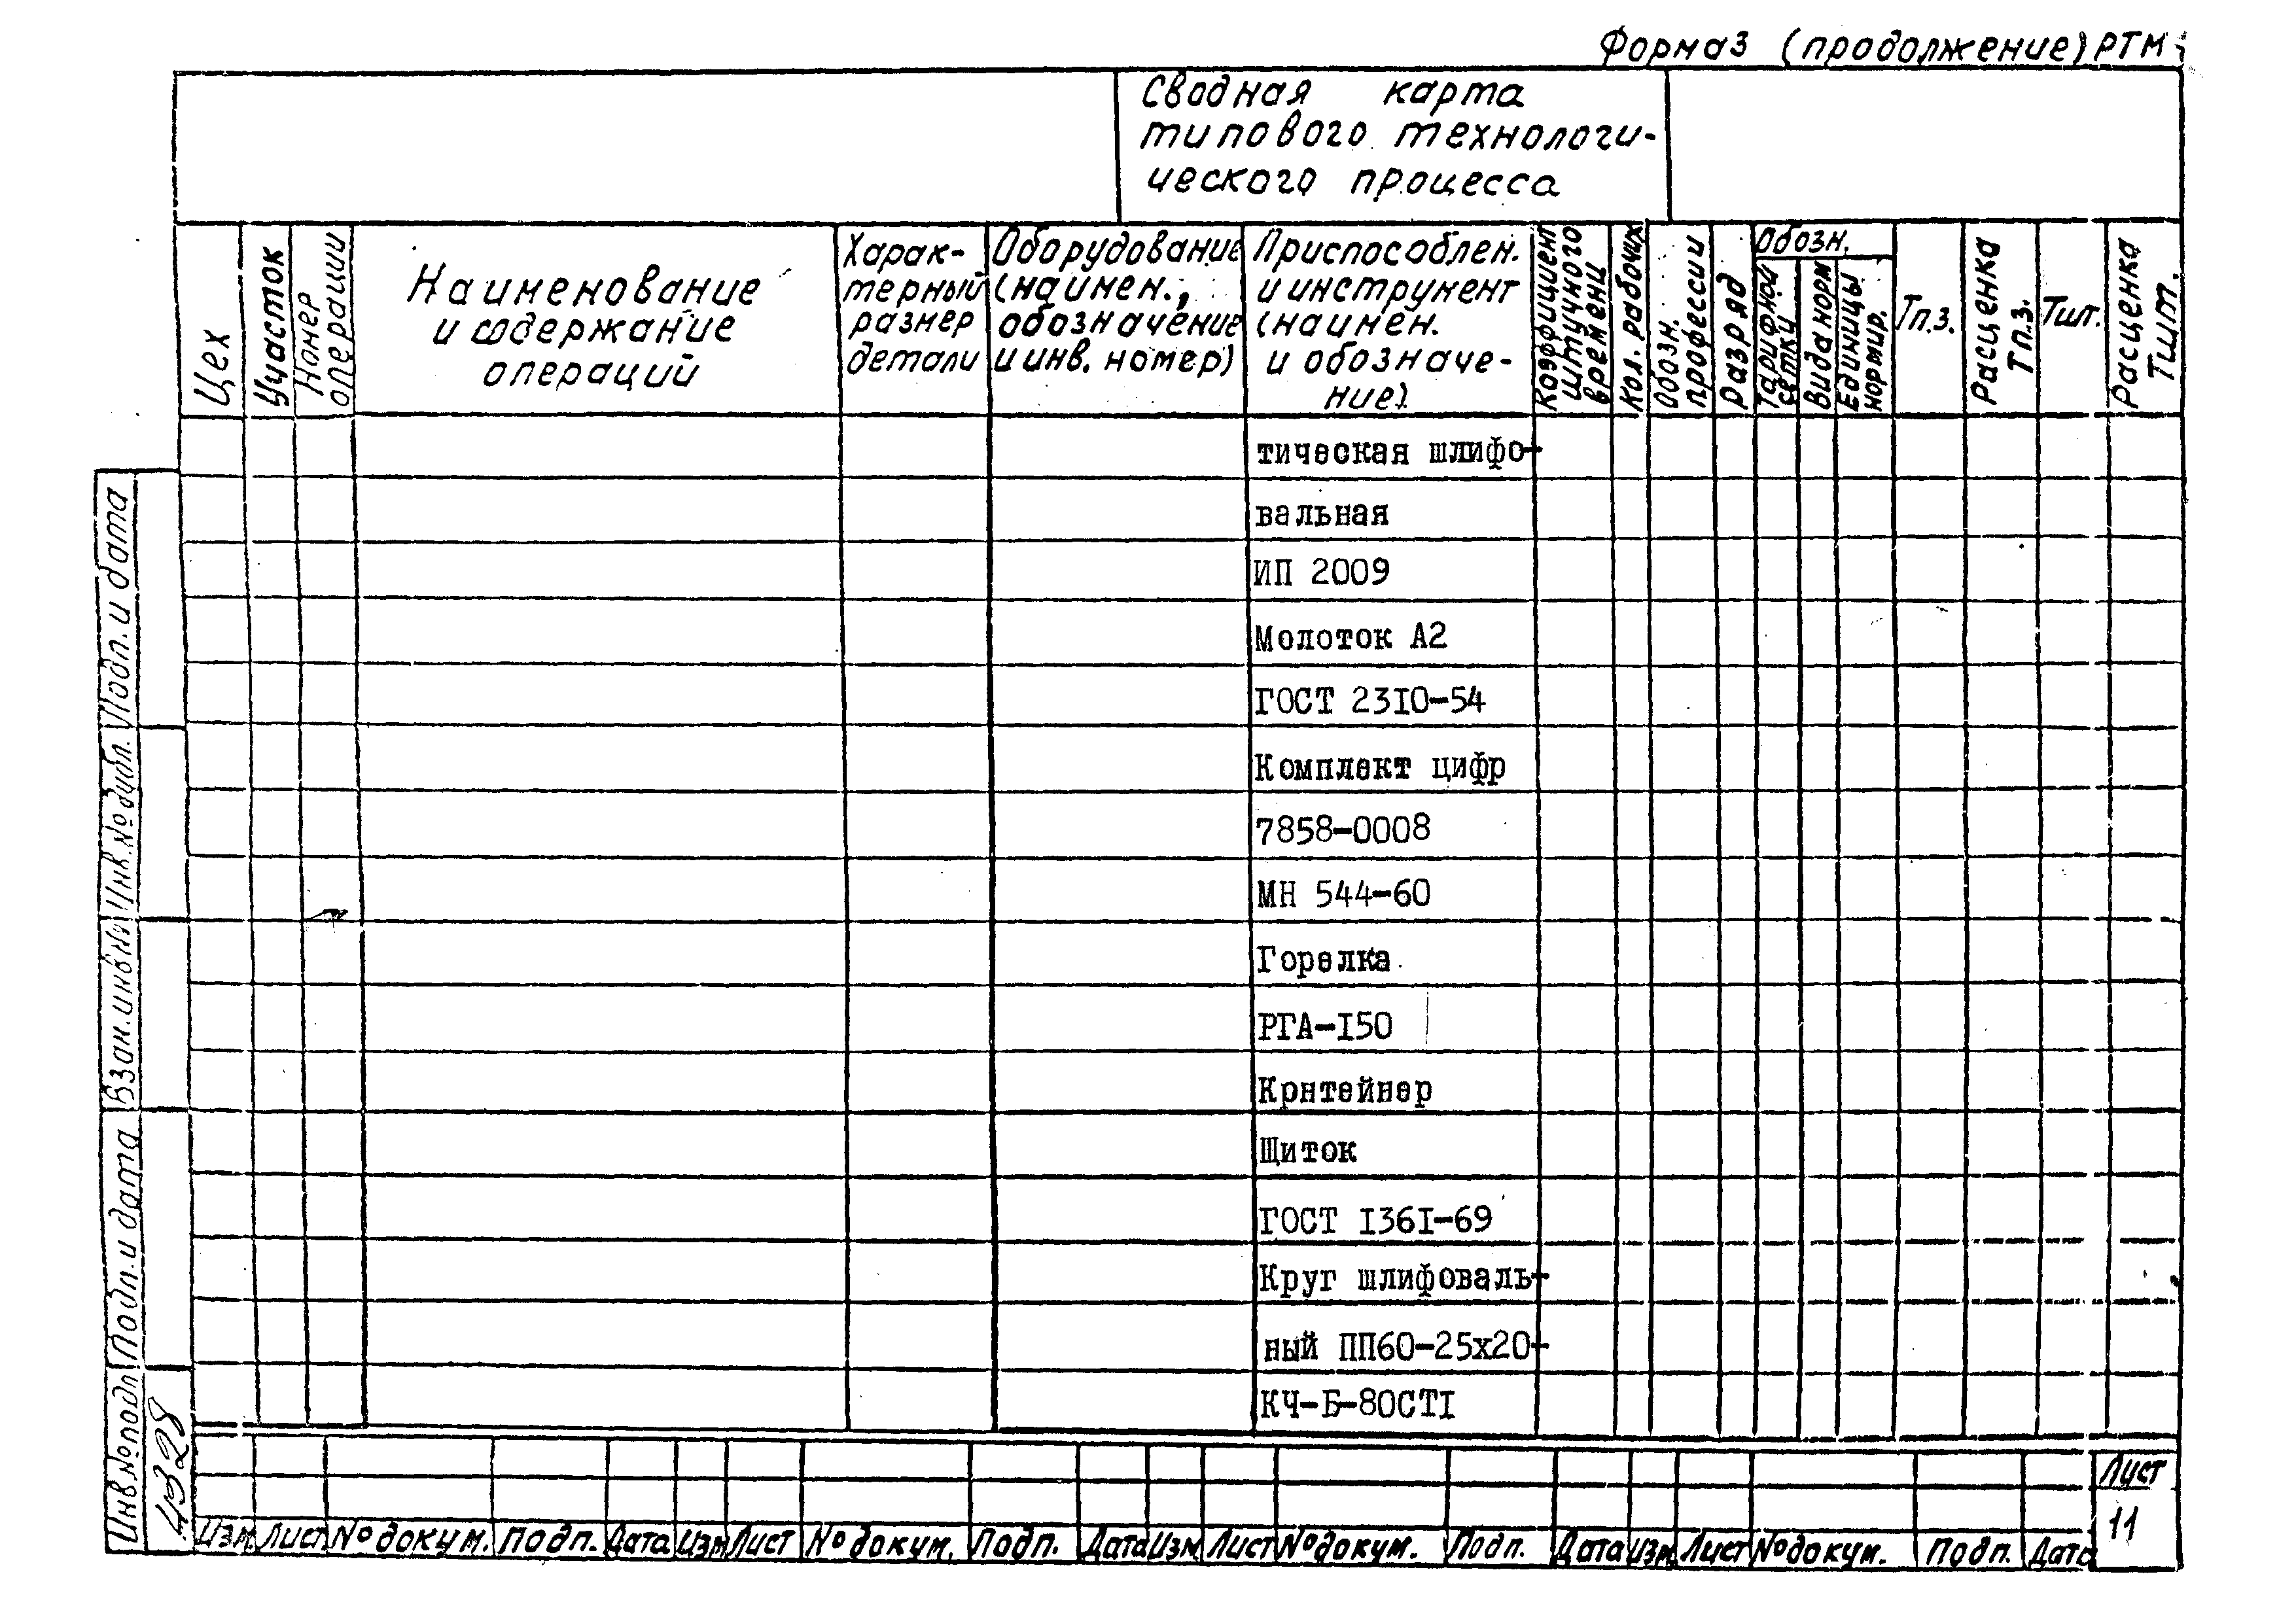 Форма3 (продолжение) РТМ
Сводная карта
типового технологи-
ческого процесса
Цех
Участок
Номер
операции
Наименование
и содержание
операций
Харак-
терный
размер
детали
Оборудование
(наимен.,
обозначение
и инв. номер)
Приспособлен.
и инструмент
(наимен.
и обозначе-
ние).
Коэффициент
штучного
времени
Кол. рабочих
Обозн.
профессии
Разряд
Обозн.
Тарифной
сетки
Вида норм
Единицы
нормир.
Тп.з.
Расценка
Тп.з.
Тшт.
Расценка
Тшт.
тическая шлифо-
вальная
ИП 2009
Молоток А2
ГОСТ 23I0-54
Комплект цифр
7858-0008
МН 544-60
Горелка
РГА-I50
Крнтейнер
Щиток
ГОСТ I36I-69
Круг шлифоваль-
ный ПП60-25х20-
КЧ-Б-80СТI
Подп. и дата
Инв.№дубл.
Взам.инв№
Подп. и дата
Инв.№подл
4328
Изм Лист №докум. Подп. Дата Изм Лист №докум. Подп. Дата Изм Лист №докум. Подп. Дата Изм Лист №докум. Подп. Дата
Лист
11